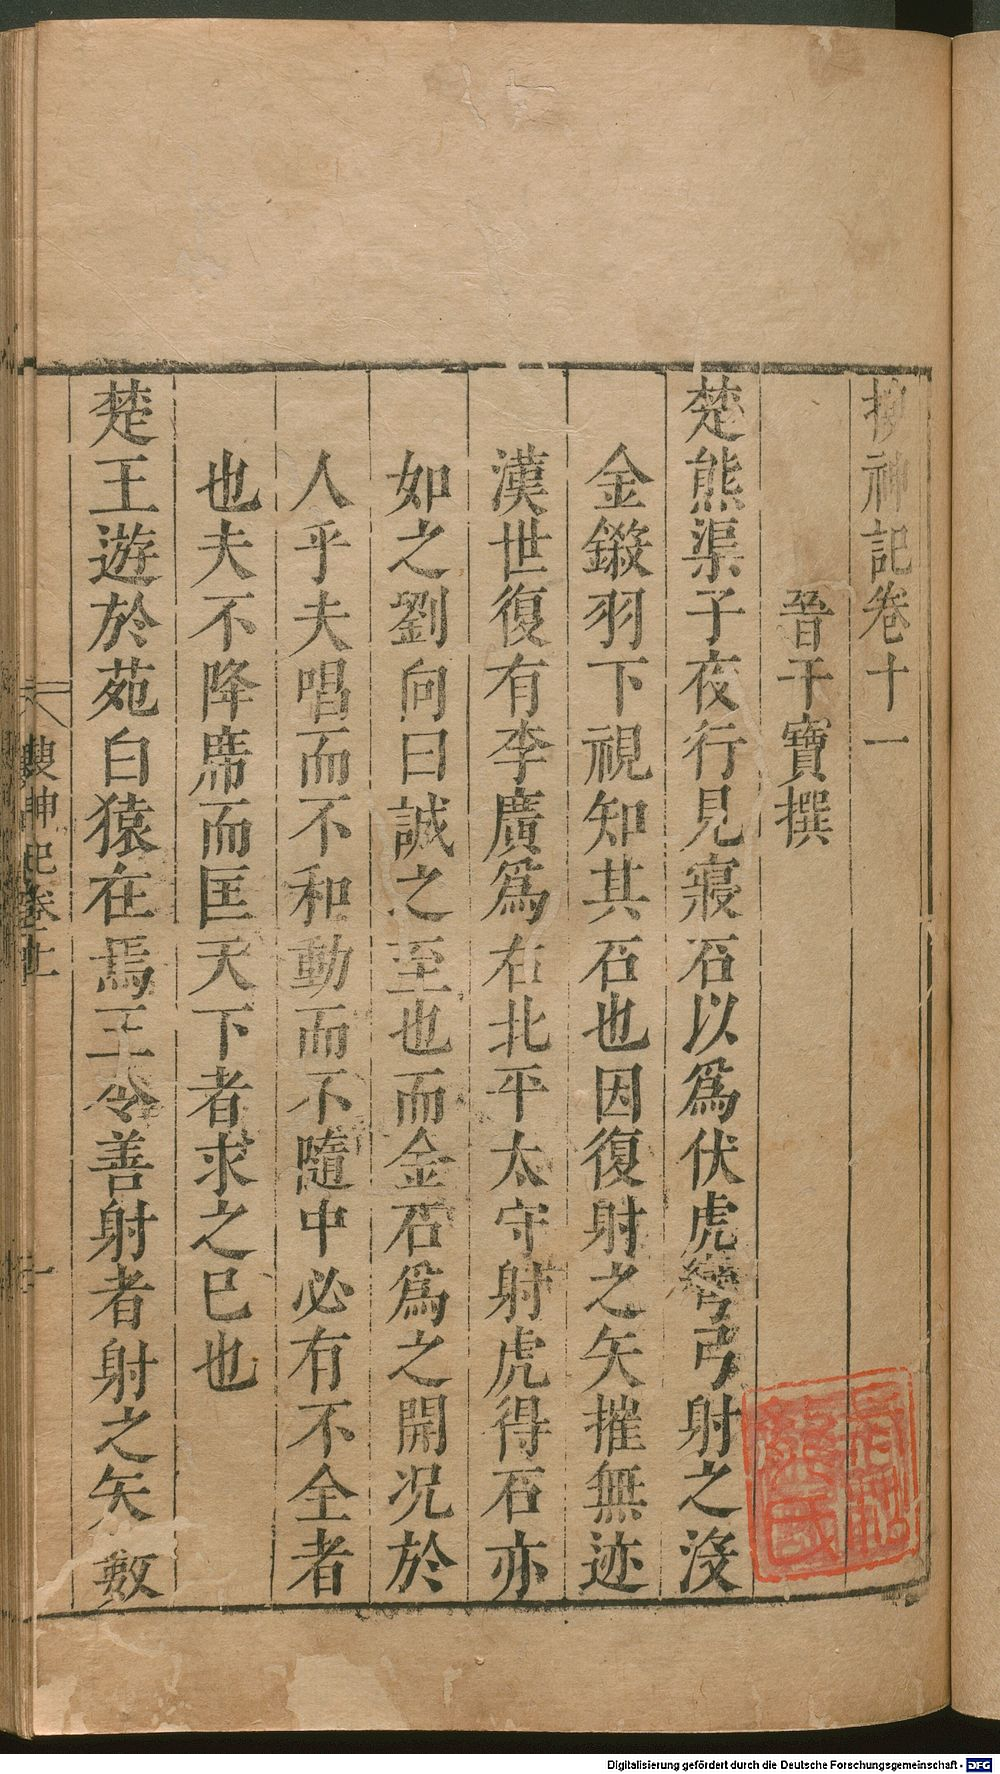 搜神記卷十一
晉干寶撰
楚熊渠子夜行見寢石以爲伏虎彎弓射之沒
金鎩羽下視知其石也因復射之矢摧無迹
漢世復有李廣爲右北平太守射虎得石亦
如之劉向曰誠之至也而金石爲之開况於
人乎夫唱而不和動而不隨中必有不全者
也夫不降席而匡天下者求之已也
楚王遊於苑白猿在焉王令善射者射之矢數
搜神記卷十一
一
Digitalisierung gefördert durch die Deutsche Forschungsgemeinschaft - DFG